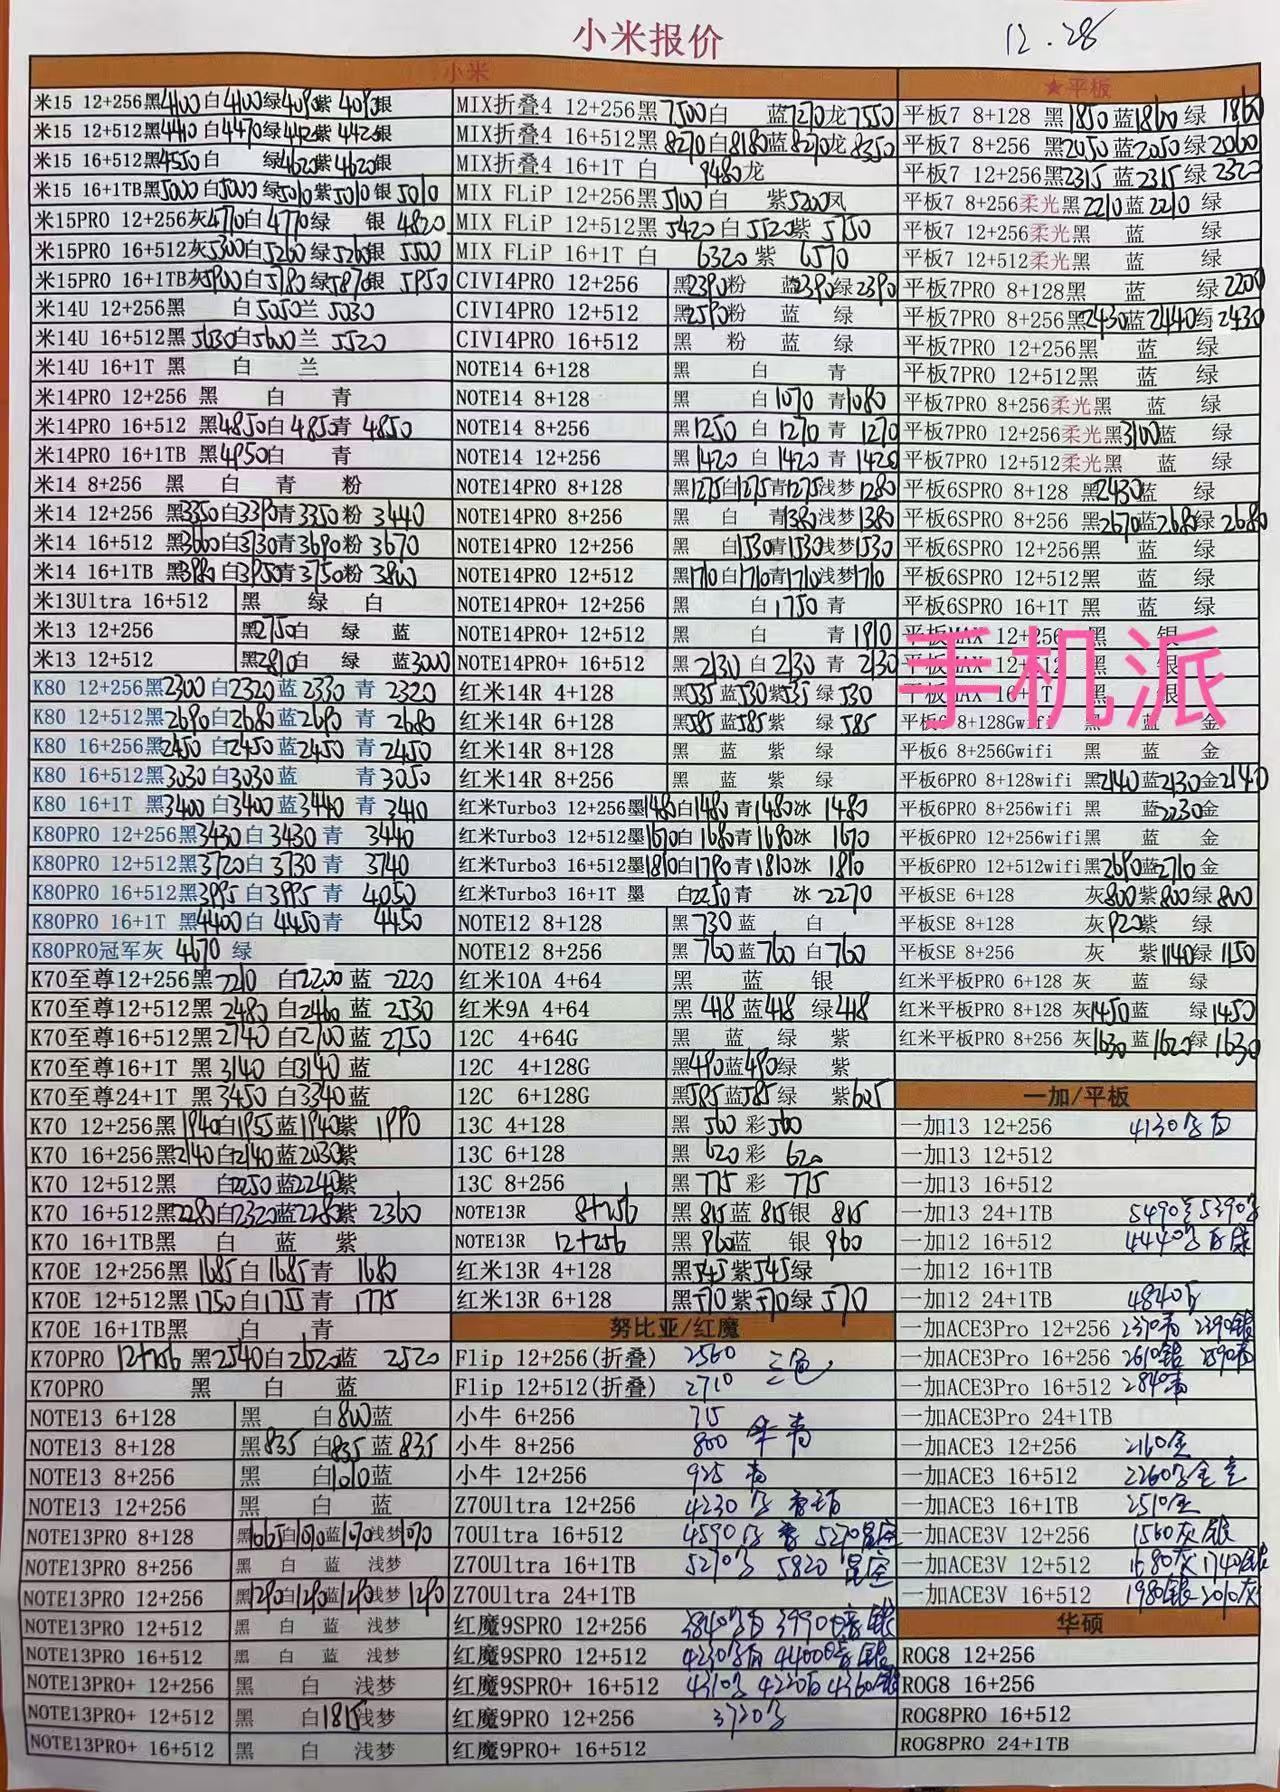 小米报价 12.28
小米
米15 12+256黑4100白4100绿4090紫4090银
米15 12+512黑4440白4470绿4420紫4420银
米15 16+512黑4550白 绿4620紫4620银
米15 16+1TB黑5000白5000绿5010紫5010银 5010
米15PRO 12+256灰4770白4770绿 银 4820
米15PRO 16+512灰5300白5260绿5260银 5500
米15PRO 16+1TB灰5900白5780绿5870银 5950
米14U 12+256黑 白5050兰 5030
米14U 16+512黑5630白5600兰 5520
米14U 16+1T 黑 白 兰
米14PRO 12+256 黑 白 青
米14PRO 16+512 黑4850白4850青 4850
米14PRO 16+1TB 黑4950白 青
米14 8+256 黑 白 青 粉
米14 12+256 黑3350白3390青3350粉 3440
米14 16+512 黑3600白3730青3690粉 3670
米14 16+1TB 黑3980白3950青3750粉 3800
米13Ultra 16+512 黑 绿 白
米13 12+256 黑2750白 绿 蓝
米13 12+512 黑2810白 绿 蓝3000
K80 12+256黑2300白2320蓝2330 青 2320
K80 12+512黑2690白2680蓝2690 青 2680
K80 16+256黑2450白2450蓝2450 青 2450
K80 16+512黑3030白3030蓝 青3050
K80 16+1T 黑3400白3400蓝3440 青 3410
K80PRO 12+256黑3430白3430青 3440
K80PRO 12+512黑3720白3730青 3740
K80PRO 16+512黑3995白3995青 4050
K80PRO 16+1T 黑4400白4450青 4450
K80PRO冠军灰 4670 绿
K70至尊12+256黑2210 白2200蓝 2220
K70至尊12+512黑2480 白2460蓝 2530
K70至尊16+512黑2740 白2700蓝 2750
K70至尊16+1T 黑3140 白3140蓝
K70至尊24+1T 黑3450 白3340蓝
K70 12+256黑1940白1955蓝1940紫 1990
K70 16+256黑2140白2140蓝2030紫
K70 12+512黑 白2250蓝2240紫
K70 16+512黑2280白2320蓝2280紫 2360
K70 16+1TB黑 白 蓝 紫
K70E 12+256黑1685白1685青 1680
K70E 12+512黑1750白1755青 1775
K70E 16+1TB黑 白 青
K70PRO 12+256 黑2540白2520蓝 2520
K70PRO 黑 白 蓝
NOTE13 6+128 黑 白800蓝
NOTE13 8+128 黑835 白835蓝835
NOTE13 8+256 黑 白1010蓝
NOTE13 12+256 黑 白 蓝
NOTE13PRO 8+128 黑1065白1070蓝1070浅梦1070
NOTE13PRO 8+256 黑 白 蓝 浅梦
NOTE13PRO 12+256 黑1240白1240蓝1240浅梦1240
NOTE13PRO 12+512 黑 白 蓝 浅梦
NOTE13PRO 16+512 黑 白 蓝 浅梦
NOTE13PRO+ 12+256 黑 白 浅梦
NOTE13PRO+ 12+512 黑 白1815浅梦
NOTE13PRO+ 16+512 黑 白 浅梦
MIX折叠4 12+256黑7500白 蓝7270龙7550
MIX折叠4 16+512黑8270白8180蓝8270龙8350
MIX折叠4 16+1T 白 9480龙
MIX FLiP 12+256黑5100白 紫5200凤
MIX FLiP 12+512黑5420白5520紫 5750
MIX FLiP 16+1T 白 6320紫 6570
CIVI4PRO 12+256 黑2390粉 蓝2390绿2390
CIVI4PRO 12+512 黑2590粉 蓝 绿
CIVI4PRO 16+512 黑 粉 蓝 绿
NOTE14 6+128 黑 白 青
NOTE14 8+128 黑 白1070 青1080
NOTE14 8+256 黑1250 白1270 青1270
NOTE14 12+256 黑1420 白1420 青1420
NOTE14PRO 8+128 黑1275白1275青1275浅梦1280
NOTE14PRO 8+256 黑 白 青1380浅梦1380
NOTE14PRO 12+256 黑 白1530青1530浅梦1530
NOTE14PRO 12+512 黑1710白1710青1710浅梦1710
NOTE14PRO+ 12+256 黑 白1750 青
NOTE14PRO+ 12+512 黑 白 青1910
NOTE14PRO+ 16+512 黑2130白2130 青2130
红米14R 4+128 黑535蓝530紫535绿530
红米14R 6+128 黑585蓝585紫 绿585
红米14R 8+128 黑 蓝 紫 绿
红米14R 8+256 黑 蓝 紫 绿
红米Turbo3 12+256墨1480白1480青1480冰 1480
红米Turbo3 12+512墨1670白1680青1680冰 1670
红米Turbo3 16+512墨1810白1790青1810冰 1810
红米Turbo3 16+1T 墨 白2250青 冰 2270
NOTE12 8+128 黑730蓝 白
NOTE12 8+256 黑760蓝760白760
红米10A 4+64 黑 蓝 银
红米9A 4+64 黑418蓝418绿418
12C 4+64G 黑 蓝 绿 紫
12C 4+128G 黑490蓝490绿 紫
12C 6+128G 黑585蓝585绿 紫605
13C 4+128 黑560 彩560
13C 6+128 黑620彩 620
13C 8+256 黑775 彩 775
NOTE13R 8+256 黑815蓝815银 815
NOTE13R 12+256 黑960蓝 银960
红米13R 4+128 黑545紫545绿
红米13R 6+128 黑570紫570绿570
努比亚/红魔
Flip 12+256(折叠) 2560 三色
Flip 12+512(折叠) 2710
小牛 6+256 715
小牛 8+256 800 青
小牛 12+256 925 青
Z70Ultra 12+256 4230
70Ultra 16+512 4590 5270星空
Z70Ultra 16+1TB 5270 5820 星空
Z70Ultra 24+1TB
红魔9SPRO 12+256 3840 3990 银
红魔9SPRO 12+512 4230 4400 银
红魔9SPRO+ 16+512 4310 4220 4360银
红魔9PRO 12+256 3720
红魔9PRO+ 16+512
★平板
平板7 8+128 黑1850蓝1860绿 1860
平板7 8+256 黑2050蓝2050绿2060
平板7 12+256黑2315蓝2315绿2320
平板7 8+256柔光黑2210蓝2210 绿
平板7 12+256柔光黑 蓝 绿
平板7 12+512柔光黑 蓝 绿
平板7PRO 8+128黑 蓝 绿2200
平板7PRO 8+256黑2430蓝2440绿2430
平板7PRO 12+256黑 蓝 绿
平板7PRO 12+512黑 蓝 绿
平板7PRO 8+256柔光黑 蓝 绿
平板7PRO 12+256柔光黑3100蓝 绿
平板7PRO 12+512柔光黑 蓝 绿
平板6SPRO 8+128 黑2430蓝 绿
平板6SPRO 8+256 黑2670蓝2680绿2680
平板6SPRO 12+256黑 蓝 绿
平板6SPRO 12+512黑 蓝 绿
平板6SPRO 16+1T 黑 蓝 绿
平板MAX 12+256 黑 银
平板MAX 12+512 黑 银
平板MAX 16+1T 黑 银
手机派
平板6 8+128Gwifi 黑 蓝 金
平板6 8+256Gwifi 黑 蓝 金
平板6PRO 8+128wifi 黑2140蓝2130金2140
平板6PRO 8+256wifi 黑 蓝2230金
平板6PRO 12+256wifi黑 蓝 金
平板6PRO 12+512wifi黑2690蓝2710金
平板SE 6+128 灰800紫800绿800
平板SE 8+128 灰920紫 绿
平板SE 8+256 灰 紫1140绿1150
红米平板PRO 6+128 灰 蓝 绿
红米平板PRO 8+128 灰1450蓝 绿1450
红米平板PRO 8+256 灰1630蓝1620绿1630
一加/平板
一加13 12+256 4130
一加13 12+512
一加13 16+512
一加13 24+1TB 5490 5390
一加12 16+512 4440
一加12 16+1TB
一加12 24+1TB 4840
一加ACE3Pro 12+256 2370青 2390银
一加ACE3Pro 16+256 2610银 2590青
一加ACE3Pro 16+512 2840青
一加ACE3Pro 24+1TB
一加ACE3 12+256 2160金
一加ACE3 16+512 2260
一加ACE3 16+1TB 2510金
一加ACE3V 12+256 1560灰 银
一加ACE3V 12+512 1680灰 1740银
一加ACE3V 16+512 1980银 2010灰
华硕
ROG8 12+256
ROG8 16+256
ROG8PRO 16+512
ROG8PRO 24+1TB